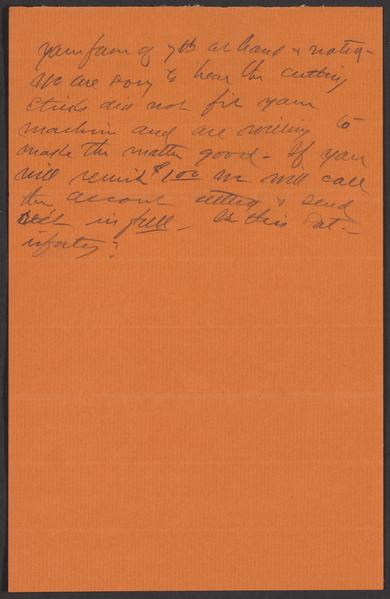 Your favor of 7th at hand & noted -
We are sorry to hear the cutting
sticks did not fit your
machine and are willing to
make the matter good - If you
will remit $1.00 we will call
the account settled & send
in full. Is this sat-
isfactory?